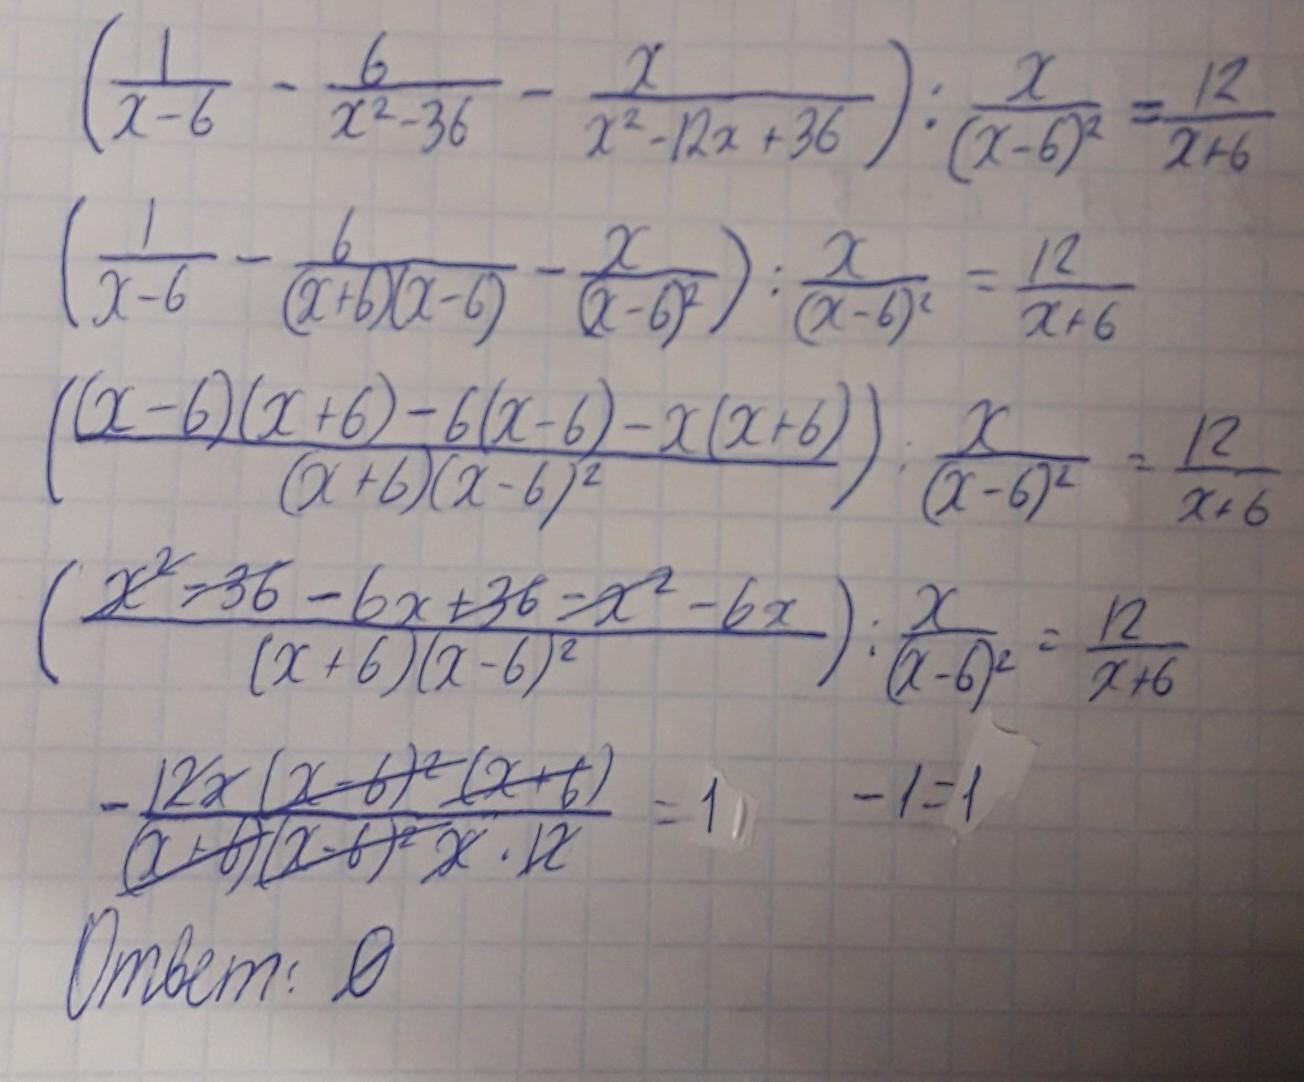 (1/(x-6) - 6/(x²-36) - x/(x²-12x+36)) : x/(x-6)² = 12/(x+6)
(1/(x-6) - 6/((x+6)(x-6)) - x/(x-6)²) : x/(x-6)² = 12/(x+6)
(((x-6)(x+6)-6(x-6)-x(x+6))/((x+6)(x-6)²)) : x/(x-6)² = 12/(x+6)
((x²-36-6x+36-x²-6x)/((x+6)(x-6)²)) : x/(x-6)² = 12/(x+6)
-(12x(x-6)²(x+6))/((x+6)(x-6)² x·12) = 1 -1=1
Ответ: Ø